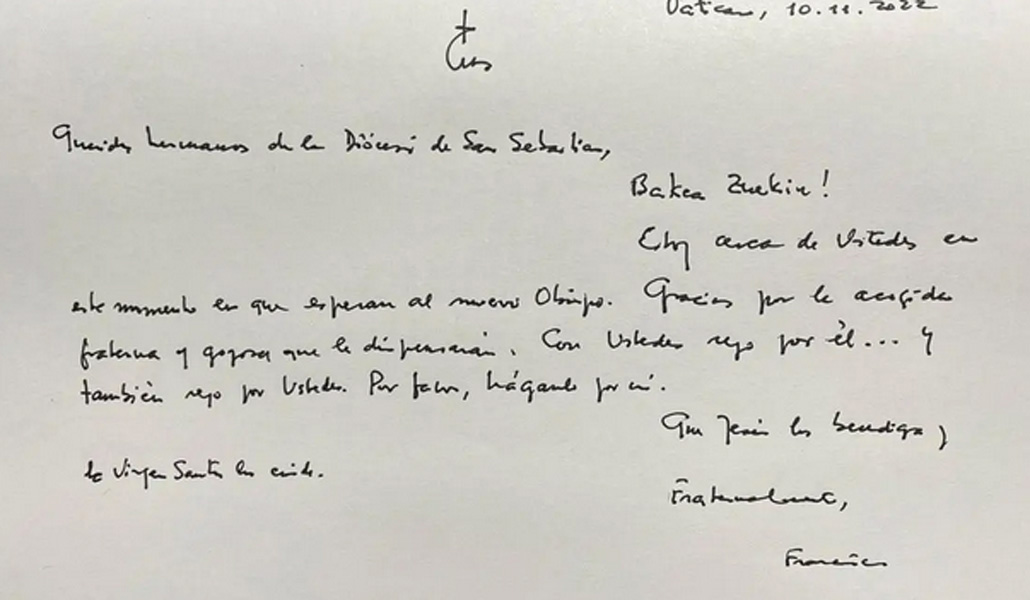 Vaticano, 10.11.2022
Queridos hermanos de la Diócesi de San Sebastian,
Bakea Zuekin!
Estoy cerca de Ustedes en
este momento en que esperan al nuevo Obispo. Gracias por la acogida
fraterna y gozosa que le dispensarán. Con Ustedes rezo por él... Y
también rezo por Ustedes. Por favor, háganlo por mí.
Que Jesús los bendiga y
la Virgen Santa los cuide.
Fraternalmente,
Francisco